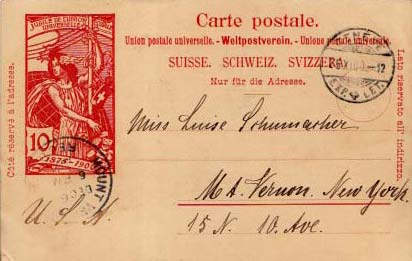 Carte postale.
Union postale universelle. - Weltpostverein. - Unione postale universale.
SUISSE. SCHWEIZ. SVIZZERA.
Nur für die Adresse.
Côté réservé à l'adresse.
Lato riservato all' indirizzo.
JUBILÉ DE L'UNION
POSTALE UNIVERSELLE
10
1875-1900
EXP. LET.
MOUNT
REC'D
Miss Luise Schumacher
Mt. Vernon. New York.
15 N. 10. Ave.
U. S. A.